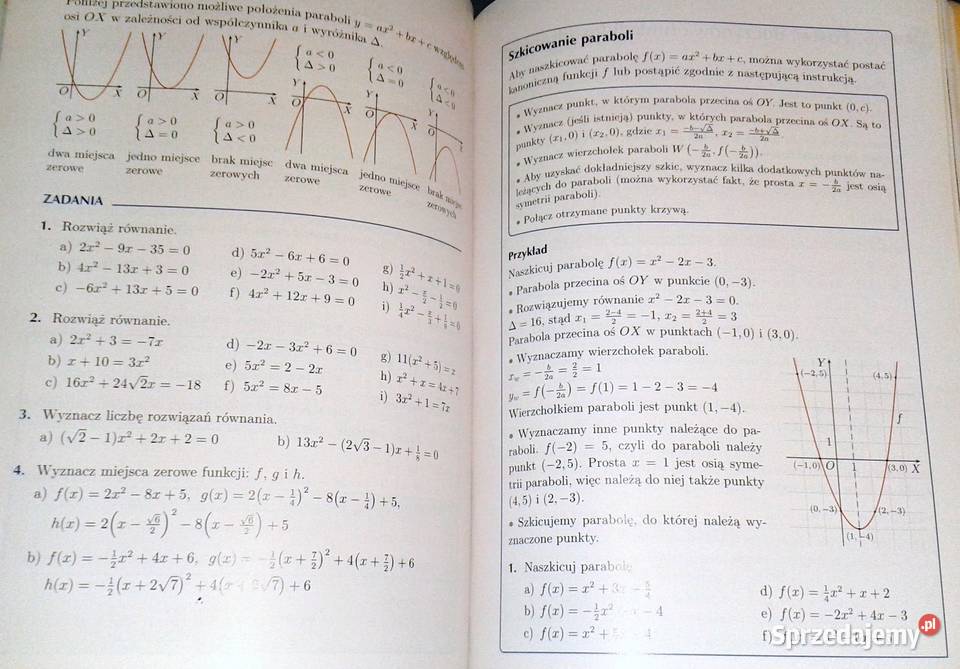 Poniżej przedstawiono możliwe położenia paraboli y = ax² + bx + c względem
osi OX w zależności od współczynnika a i wyróżnika Δ.
Y Y Y
O X O X O X
{ a > 0 { a > 0 { a > 0
Δ > 0 Δ = 0 Δ < 0
dwa miejsca jedno miejsce brak miejsc
zerowe zerowe zerowych
{ a < 0 { a < 0 { a < 0
Δ > 0 Δ = 0 Δ < 0
Y Y Y
O X O X O
dwa miejsca jedno miejsce brak miejsc
zerowe zerowe zerowych
ZADANIA
1. Rozwiąż równanie.
a) 2x² − 9x − 35 = 0 d) 5x² − 6x + 6 = 0 g) ½x² + x + 1 = 0
b) 4x² − 13x + 3 = 0 e) −2x² + 5x − 3 = 0 h) x² − x/2 − 1/2 = 0
c) −6x² + 13x + 5 = 0 f) 4x² + 12x + 9 = 0 i) ¼x² −
2. Rozwiąż równanie.
a) 2x² + 3 = −7x d) −2x − 3x² + 6 = 0 g) 11(x² + 5) = x
b) x + 10 = 3x² e) 5x² = 2 − 2x h) x² + x = 4x + 7
c) 16x² + 24√2x = −18 f) 5x² = 8x − 5 i) 3x² + 1 = 7x
3. Wyznacz liczbę rozwiązań równania.
a) (√2 − 1)x² + 2x + 2 = 0 b) 13x² − (2√3 − 1)x + 1/8 = 0
4. Wyznacz miejsca zerowe funkcji: f, g i h.
a) f(x) = 2x² − 8x + 5, g(x) = 2(x − ¼)² − 8(x − ¼) + 5,
h(x) = 2(x − √6/2)² − 8(x − √6/2) + 5
b) f(x) = −½x² + 4x + 6, g(x) = −½(x + 7/2)² + 4(x + 7/2) + 6
h(x) = −½(x + 2√7)² + 4(x + 2√7) + 6
Szkicowanie paraboli
Aby naszkicować parabolę f(x) = ax² + bx + c, można wykorzystać postać
kanoniczną funkcji f lub postąpić zgodnie z następującą instrukcją.
• Wyznacz punkt, w którym parabola przecina oś OY. Jest to punkt (0, c).
• Wyznacz (jeśli istnieją) punkty, w których parabola przecina oś OX. Są to
punkty (x₁, 0) i (x₂, 0), gdzie x₁ = (−b−√Δ)/2a, x₂ = (−b+√Δ)/2a.
• Wyznacz wierzchołek paraboli W(−b/2a, f(−b/2a)).
• Aby uzyskać dokładniejszy szkic, wyznacz kilka dodatkowych punktów na-
leżących do paraboli (można wykorzystać fakt, że prosta x = −b/2a jest osią
symetrii paraboli).
• Połącz otrzymane punkty krzywą.
Przykład
Naszkicuj parabolę f(x) = x² − 2x − 3.
• Parabola przecina oś OY w punkcie (0, −3).
• Rozwiązujemy równanie x² − 2x − 3 = 0.
Δ = 16, stąd x₁ = (2−4)/2 = −1, x₂ = (2+4)/2 = 3
Parabola przecina oś OX w punktach (−1, 0) i (3, 0).
• Wyznaczamy wierzchołek paraboli.
x_w = −b/2a = 2/2 = 1
y_w = f(−b/2a) = f(1) = 1 − 2 − 3 = −4
Wierzchołkiem paraboli jest punkt (1, −4).
• Wyznaczamy inne punkty należące do pa-
raboli. f(−2) = 5, czyli do paraboli należy
punkt (−2, 5). Prosta x = 1 jest osią syme-
trii paraboli, więc należą do niej także punkty
(4, 5) i (2, −3).
• Szkicujemy parabolę, do której należą wy-
znaczone punkty.
Y
(−2, 5) (4, 5)
f
1
(−1, 0) O 1 (3, 0) X
(0, −3) (2, −3)
(1, −4)
1. Naszkicuj parabolę
a) f(x) = x² + 3x − 5/4 d) f(x) = ¼x² + x + 2
b) f(x) = −½x² − 4 e) f(x) = −2x² + 4x − 3
c) f(x) = x² + 4 f)
Sprzedajemy.pl